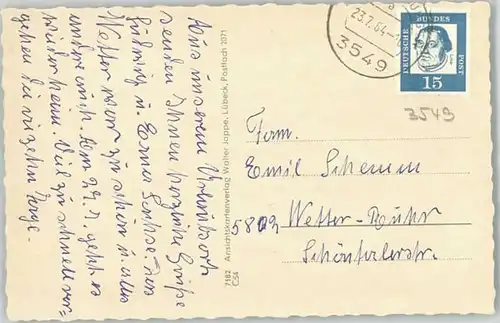 Aus unserem Urlaubsort
senden Ihnen herzliche Grüße
Ludwig u. Erna
Wetter war so schön u. alles
andere auch. Am 24.7. geht es
wieder heim. Viel zu schnell ver-
gehen die vierzehn Tage.
7182 Ansichtskartenverlag Walter Joppe, Lübeck, Postfach 2071
C54
23.7.64
3549
DEUTSCHE BUNDESPOST
15
3549
Fam.
Emil Schemm
5802 Wetter-Ruhr
Schöntalerstr.